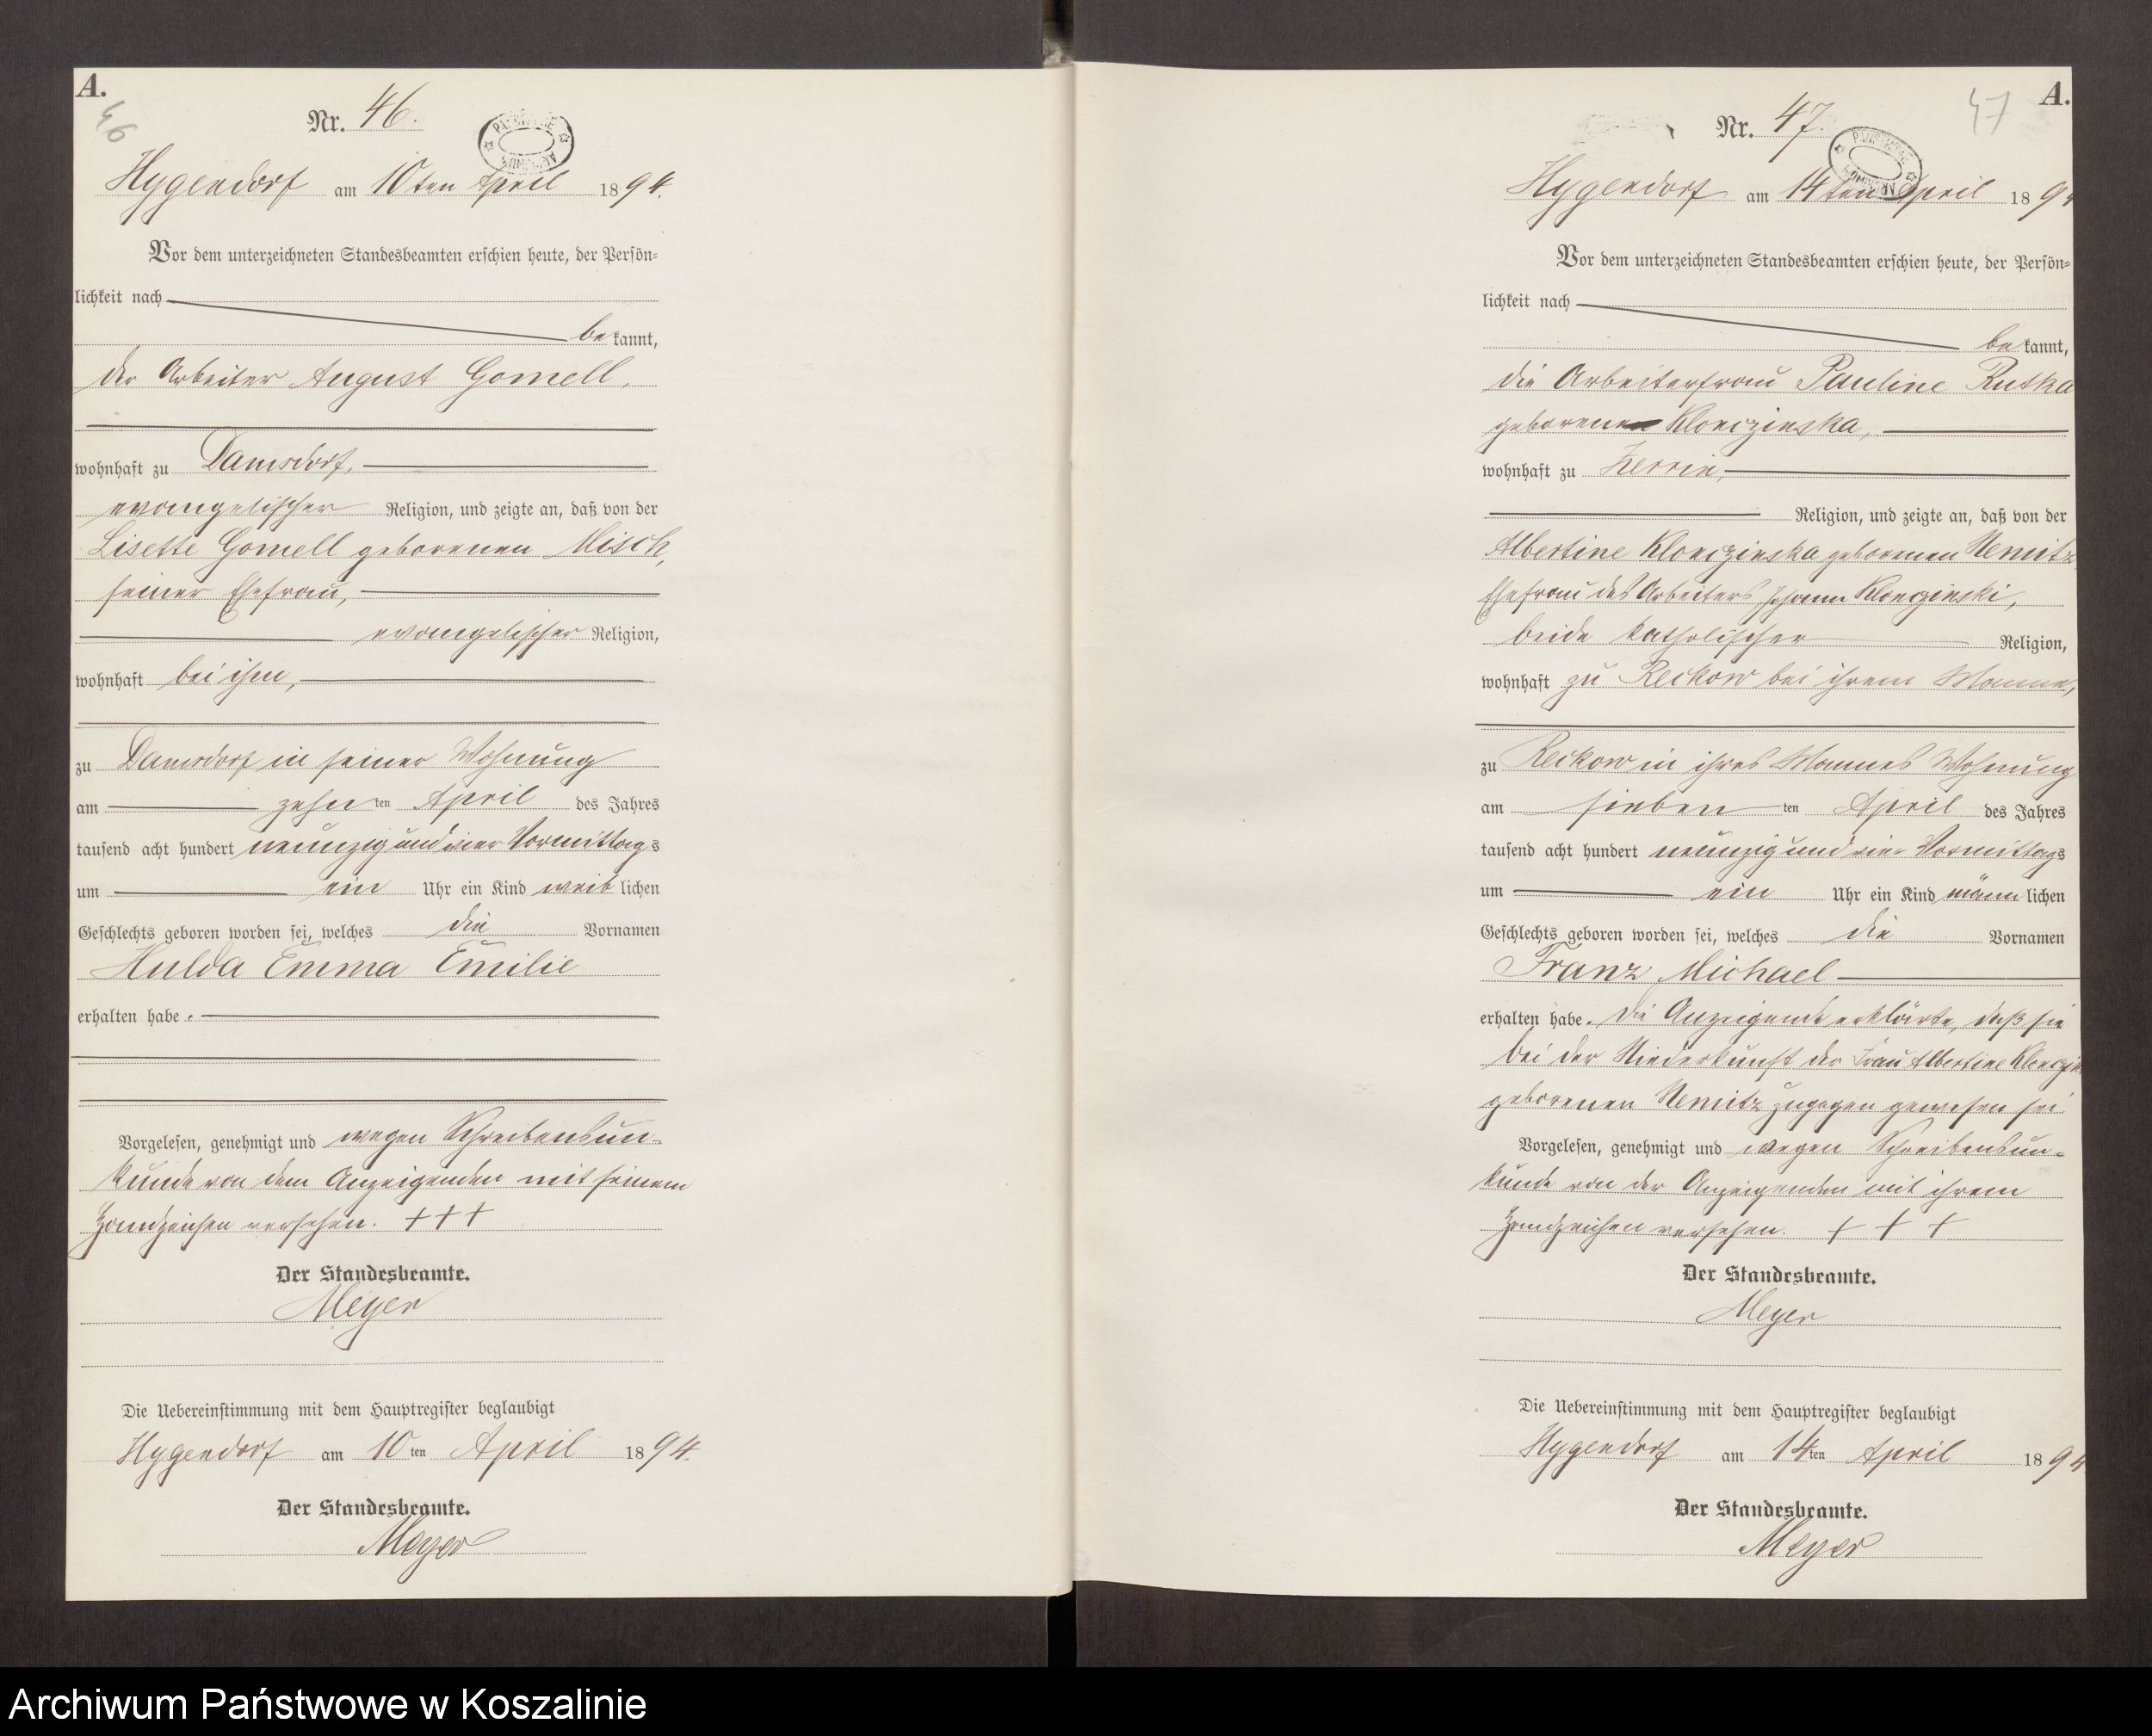 A.
46
Nr. 46.
Hygendorf am 10ten April 1894.
Vor dem unterzeichneten Standesbeamten erschien heute, der Persön=
lichkeit nach
bekannt,
der Arbeiter August Gomell,
wohnhaft zu Damsdorf,
evangelischer Religion, und zeigte an, daß von der
Lisette Gomell geborenen Misch,
seiner Ehefrau,
evangelischer Religion,
wohnhaft bei ihm,
zu Damsdorf in seiner Wohnung
am zehnten April des Jahres
tausend acht hundert neunzig und vier Vormittags
um ein Uhr ein Kind weiblichen
Geschlechts geboren worden sei, welches die Vornamen
Hulda Emma Emilie
erhalten habe.
Vorgelesen, genehmigt und wegen Schreibensun-
kunde von dem Anzeigenden mit seinem
Handzeichen versehen. +++
Der Standesbeamte.
Meyer
Die Uebereinstimmung mit dem Hauptregister beglaubigt
Hygendorf am 10ten April 1894.
Der Standesbeamte.
Meyer
47
A.
Nr. 47.
Hygendorf am 14ten April 1894
Vor dem unterzeichneten Standesbeamten erschien heute, der Persön=
lichkeit nach
bekannt,
die Arbeiterfrau Pauline Rutka
geborene Klonczinska,
wohnhaft zu Zerrin,
Religion, und zeigte an, daß von der
Albertine Klonczinska geborenen Nemitz,
Ehefrau des Arbeiters Johann Klonczinski,
beide katholischer Religion,
wohnhaft zu Reckow bei ihrem Manne,
zu Reckow in ihres Mannes Wohnung
am siebenten April des Jahres
tausend acht hundert neunzig und vier Vormittags
um ein Uhr ein Kind männlichen
Geschlechts geboren worden sei, welches die Vornamen
Franz Michael
erhalten habe. Die Anzeigende erklärte, daß sie
bei der Niederkunft der Frau Albertine
geborenen Nemitz zugegen gewesen sei
Vorgelesen, genehmigt und wegen Schreibensun-
kunde von der Anzeigenden mit ihrem
Handzeichen versehen. + + +
Der Standesbeamte.
Meyer
Die Uebereinstimmung mit dem Hauptregister beglaubigt
Hygendorf am 14ten April 1894
Der Standesbeamte.
Meyer
Archiwum Państwowe w Koszalinie